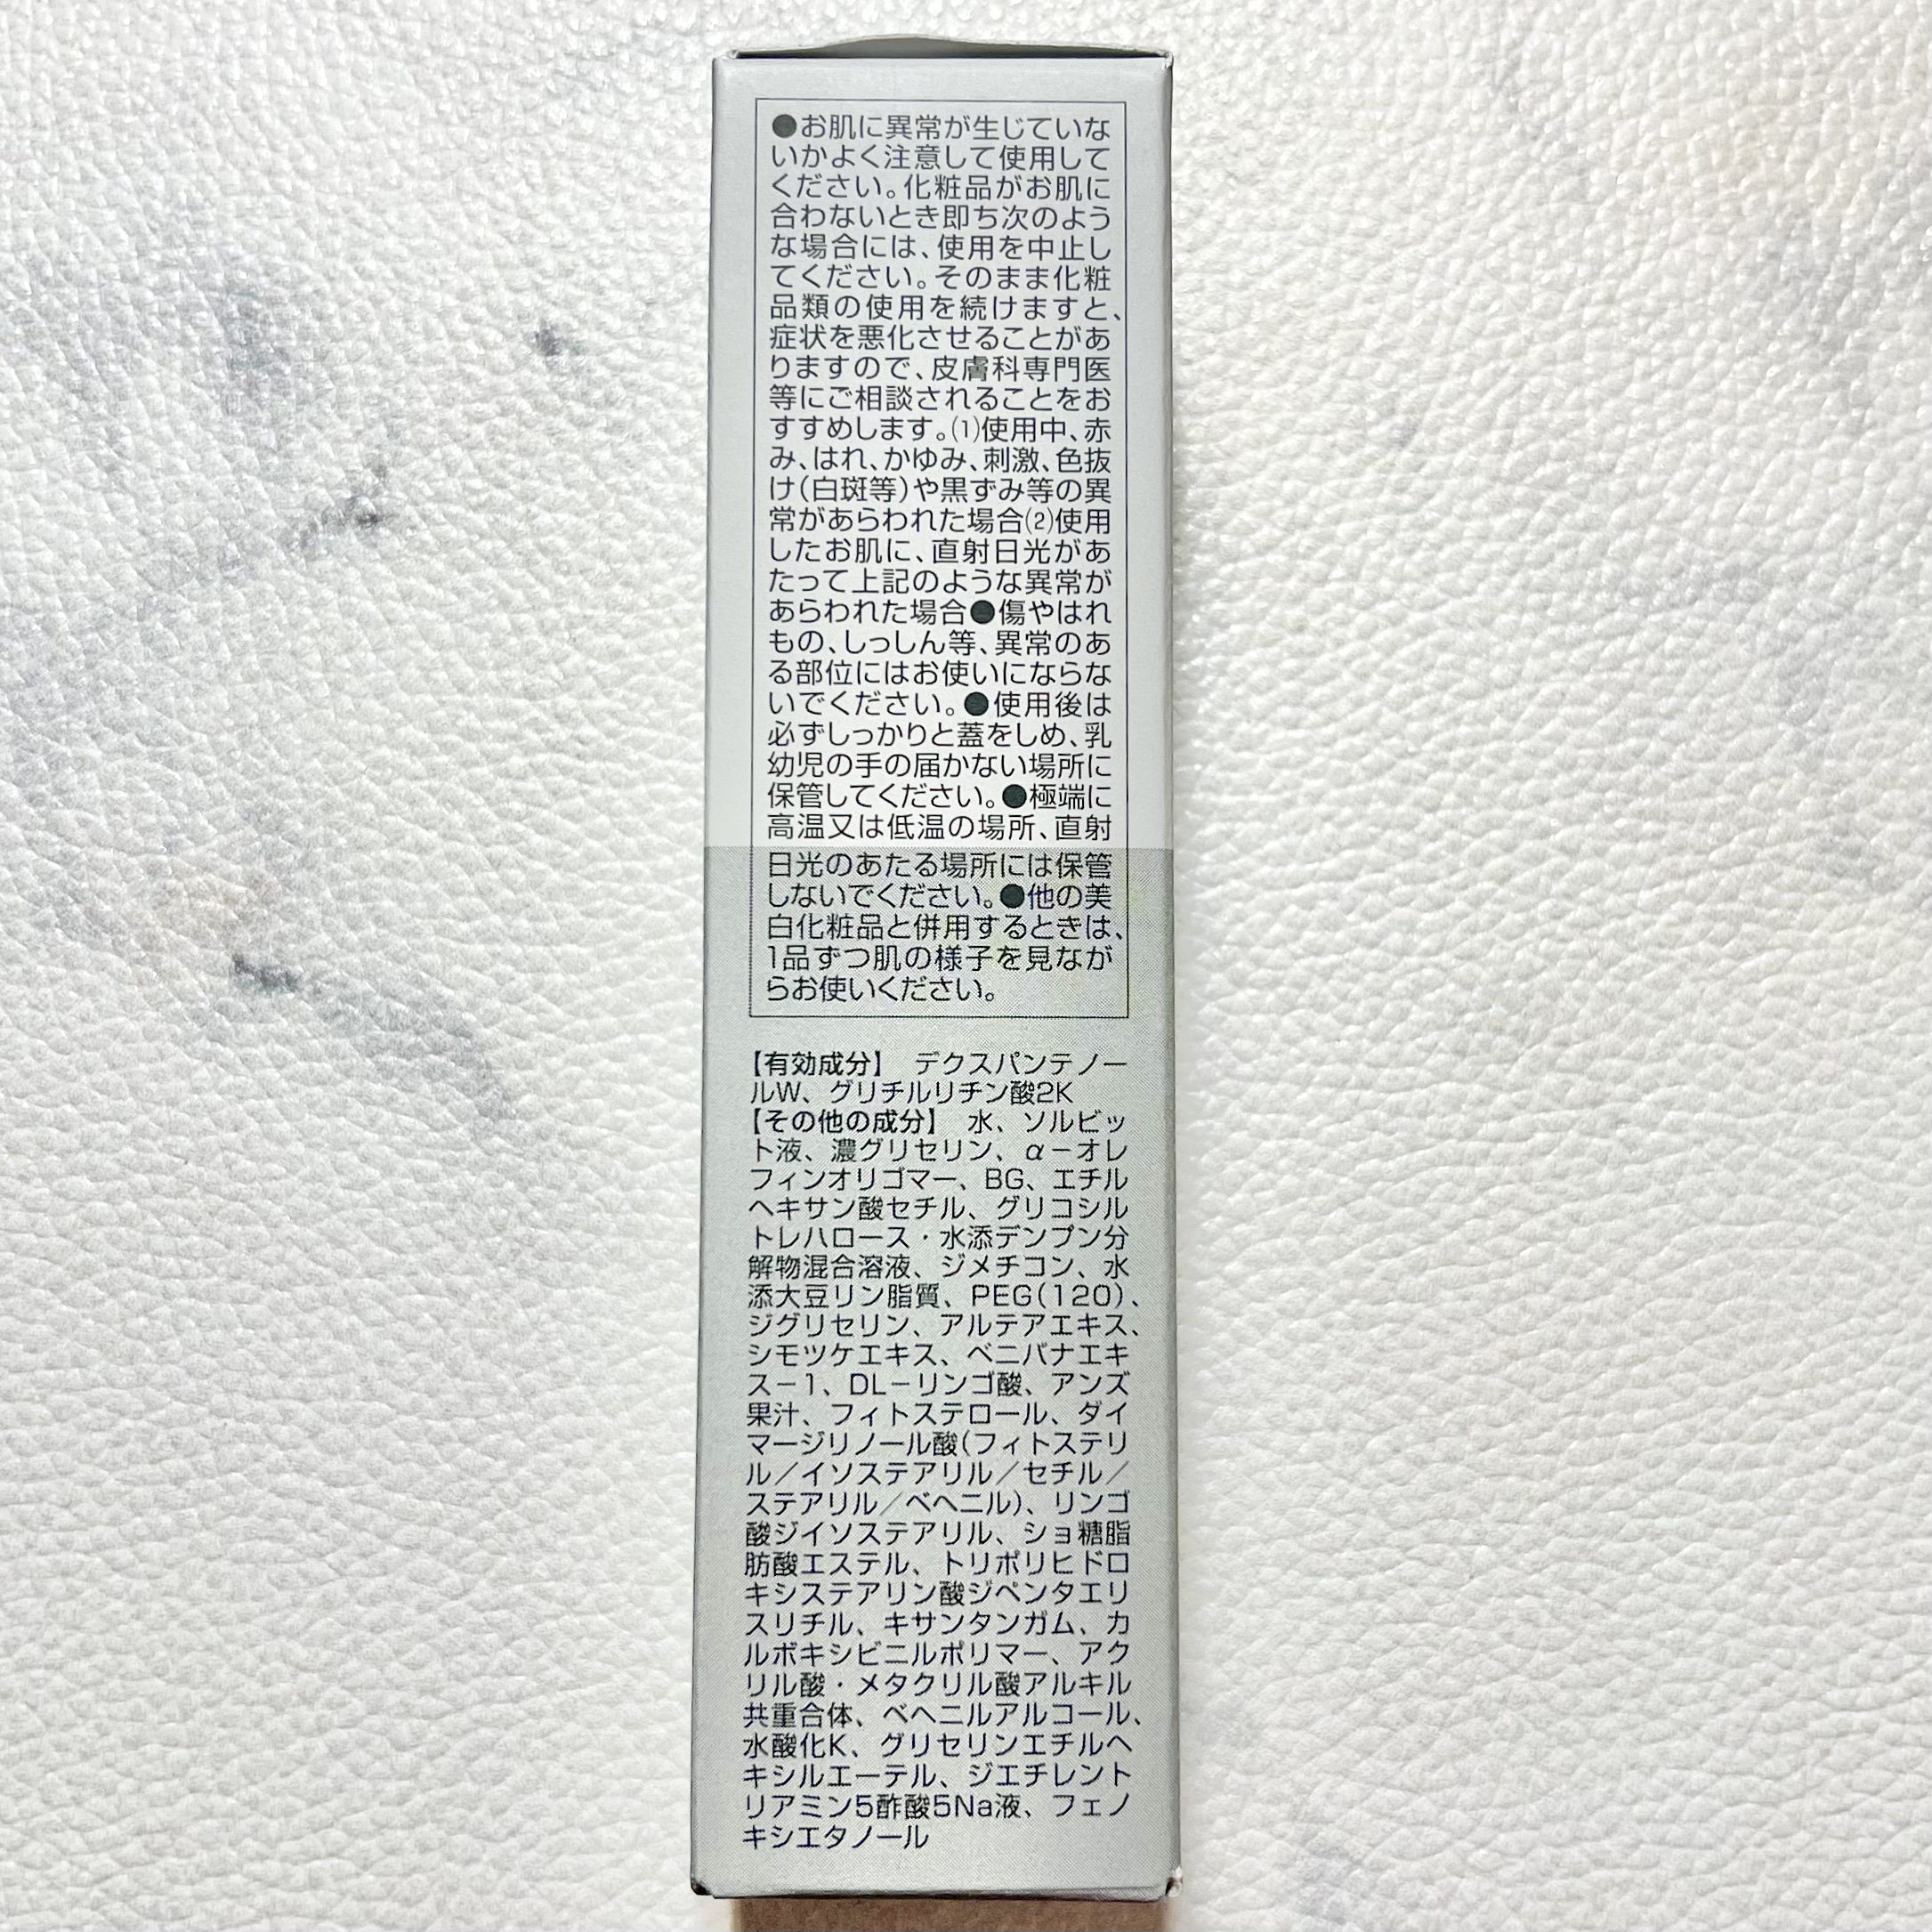 ●お肌に異常が生じていな
いかよく注意して使用して
ください。化粧品がお肌に
合わないとき即ち次のよう
な場合には、使用を中止し
てください。そのまま化粧
品類の使用を続けますと、
症状を悪化させることがあ
りますので、皮膚科専門医
等にご相談されることをお
すすめします。⑴使用中、赤
み、はれ、かゆみ、刺激、色抜
け(白斑等)や黒ずみ等の異
常があらわれた場合⑵使用
したお肌に、直射日光があ
たって上記のような異常が
あらわれた場合●傷やはれ
もの、しっしん等、異常のあ
る部位にはお使いにならな
いでください。●使用後は
必ずしっかりと蓋をしめ、乳
幼児の手の届かない場所に
保管してください。●極端に
高温又は低温の場所、直射
日光のあたる場所には保管
しないでください。●他の美
白化粧品と併用するときは、
1品ずつ肌の様子を見なが
らお使いください。
【有効成分】 デクスパンテノー
ルW、グリチルリチン酸2K
【その他の成分】 水、ソルビッ
ト液、濃グリセリン、α－オレ
フィンオリゴマー、BG、エチル
ヘキサン酸セチル、グリコシル
トレハロース・水添デンプン分
解物混合溶液、ジメチコン、水
添大豆リン脂質、PEG(120)、
ジグリセリン、アルテアエキス、
シモツケエキス、ベニバナエキ
ス－1、DL－リンゴ酸、アンズ
果汁、フィトステロール、ダイ
マージリノール酸(フィトステリ
ル／イソステアリル／セチル／
ステアリル／ベヘニル)、リンゴ
酸ジイソステアリル、ショ糖脂
肪酸エステル、トリポリヒドロ
キシステアリン酸ジペンタエリ
スリチル、キサンタンガム、カ
ルボキシビニルポリマー、アク
リル酸・メタクリル酸アルキル
共重合体、ベヘニルアルコール、
水酸化K、グリセリンエチルヘ
キシルエーテル、ジエチレント
リアミン5酢酸5Na液、フェノ
キシエタノール